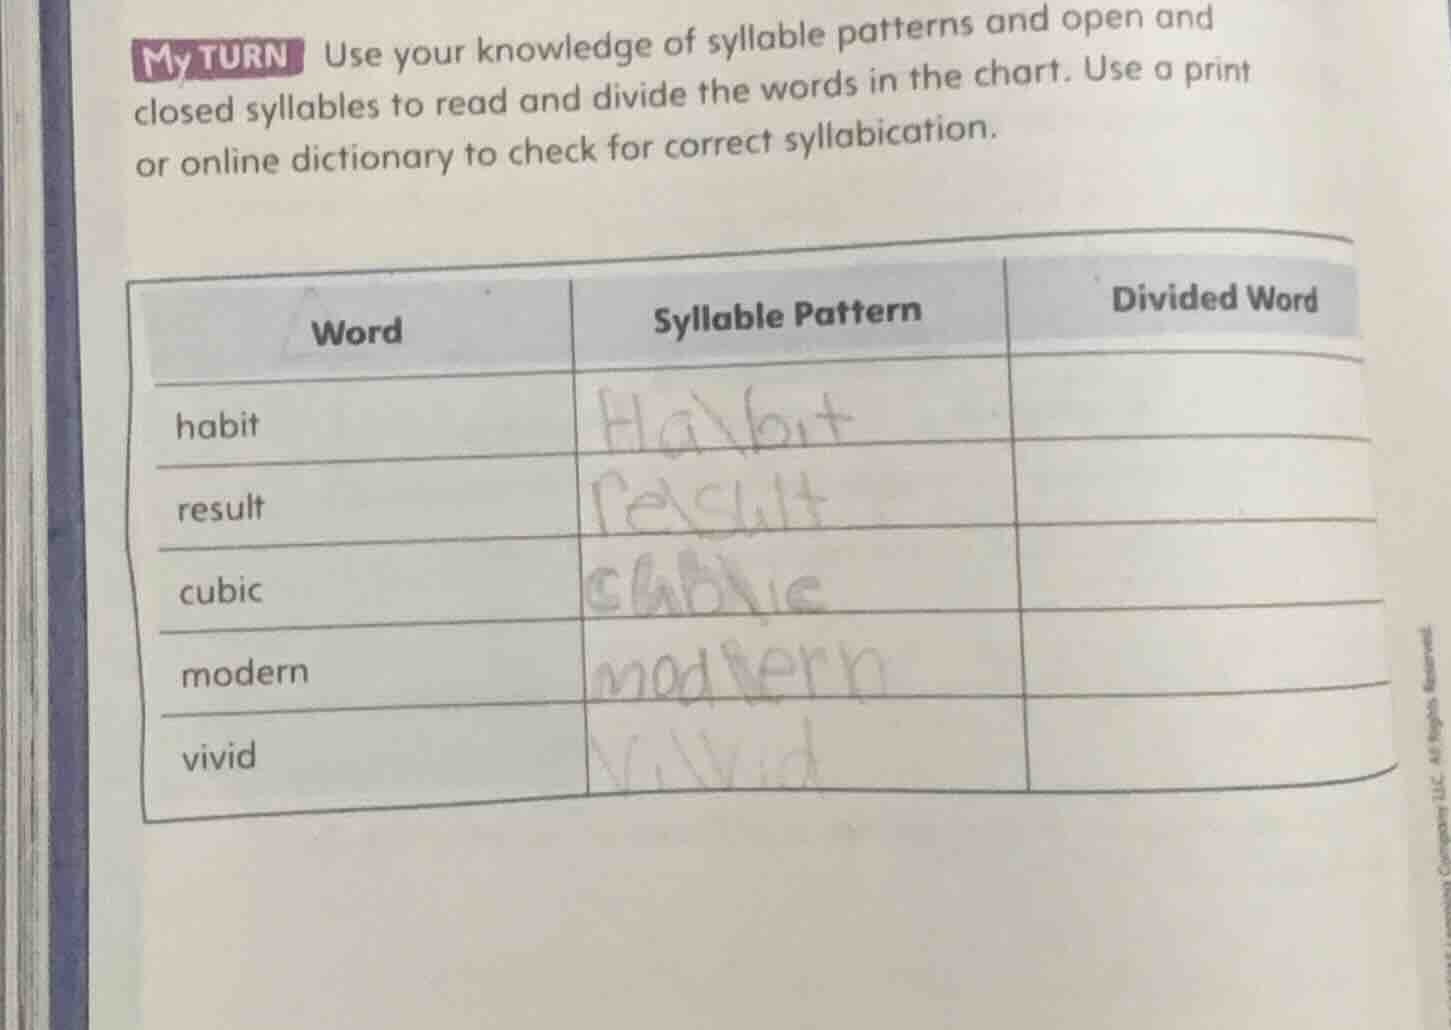 My TURN Use your knowledge of syllable patterns and open and
closed syllables to read and divide the words in the chart. Use a print
or online dictionary to check for correct syllabication.
Word Syllable Pattern Divided Word
habit Ha\bit
result re\sult
cubic cub\ic
modern mod\ern
vivid Vi\vid
Learning Company LLC. All Rights Reserved.